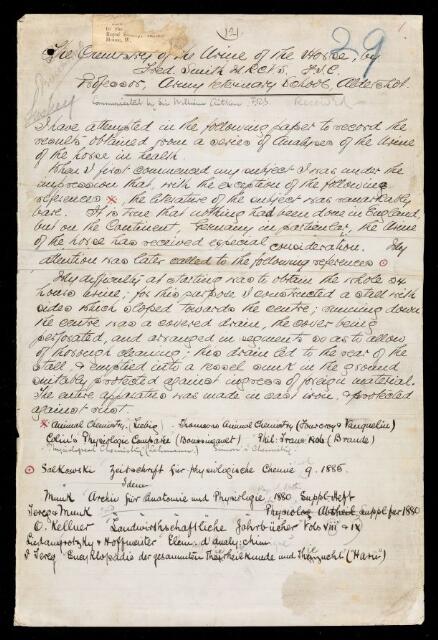 to the
Royal Society
(2)
29
The Chemistry of the Urine of the Horse, by
Fred. Smith M.R.C.V.S., F.I.C.
Professor, Army Veterinary School, Aldershot.
Communicated by Sir William Aitken, F.R.S. Received
I have attempted in the following paper to record the
results obtained from a series of Analyses of the Urine
of the horse in health.
When I first commenced my subject I was under the
impression that, with the exception of the following
references x, the literature of the subject was remarkably
bare. It is true that nothing had been done in England,
but on the Continent, Germany in particular, the urine
of the horse has received especial consideration. My
attention was later called to the following references ⊙
My difficulty at starting was to obtain the whole
horse's urine; for this purpose I constructed a stall with
sides which sloped towards the centre; running down
the centre was a covered drain, the cover being
perforated, and arranged in segments so as to allow
of thorough cleaning; this drain led to the rear of the
stall, & emptied into a vessel sunk in the ground
suitably protected against ingress of foreign material.
The entire apparatus was made in cast iron, & protected
against rust.
x Animal Chemistry (Liebig) - Thomsons Animal Chemistry (Fourcroy & Vauquelin)
Colin's Physiologie Comparée (Boussingault) - Phil: Trans: 1808 (Brande)
Physiological Chemistry (Lehmann) Simon's Chemistry
⊙ Salkowski Zeitschrift für physiologische Chemie 9. 1885.
Idem
Munk Archiv für Anatomie und Physiologie, 1880. Suppl-Heft
Tereg & Munk Physiolog Abtheil. suppl for 1880
O. Kellner Landwirthschaftliche Jahrbücher Vols VIII & IX
& Hoffmeister Elem. d'analy. chim
& Tereg Encyklopädie der gesammten Thierheilkunde und Thierzucht ("Harn")